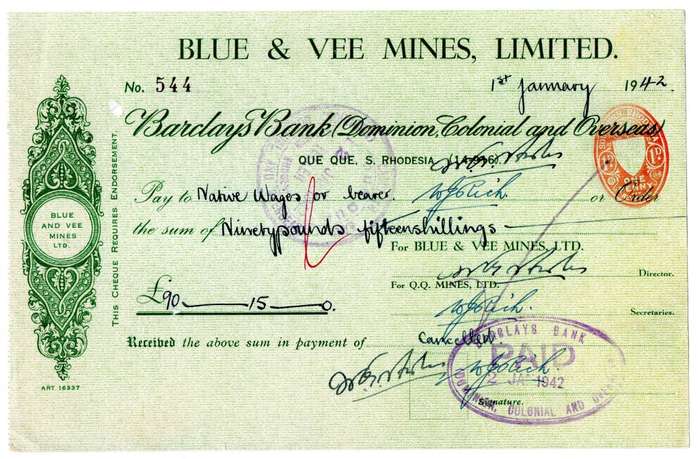 BLUE & VEE MINES, LIMITED.
No. 544
1st January 1942.
Barclays Bank (Dominion, Colonial and Overseas)
QUE QUE, S. RHODESIA
ONE
Pay to Native Wages or bearer. or Order
the sum of Ninetypounds fifteenshillings
For BLUE & VEE MINES, LTD.
Director.
£90 — 15 — 0.
For Q.Q. MINES, LTD.
Secretaries.
Received the above sum in payment of Cancelled
Signature.
BLUE
AND VEE
MINES
LTD.
THIS CHEQUE REQUIRES ENDORSEMENT.
ART 16337
BARCLAYS BANK
PAID
2 JA 1942
DOMINION, COLONIAL AND